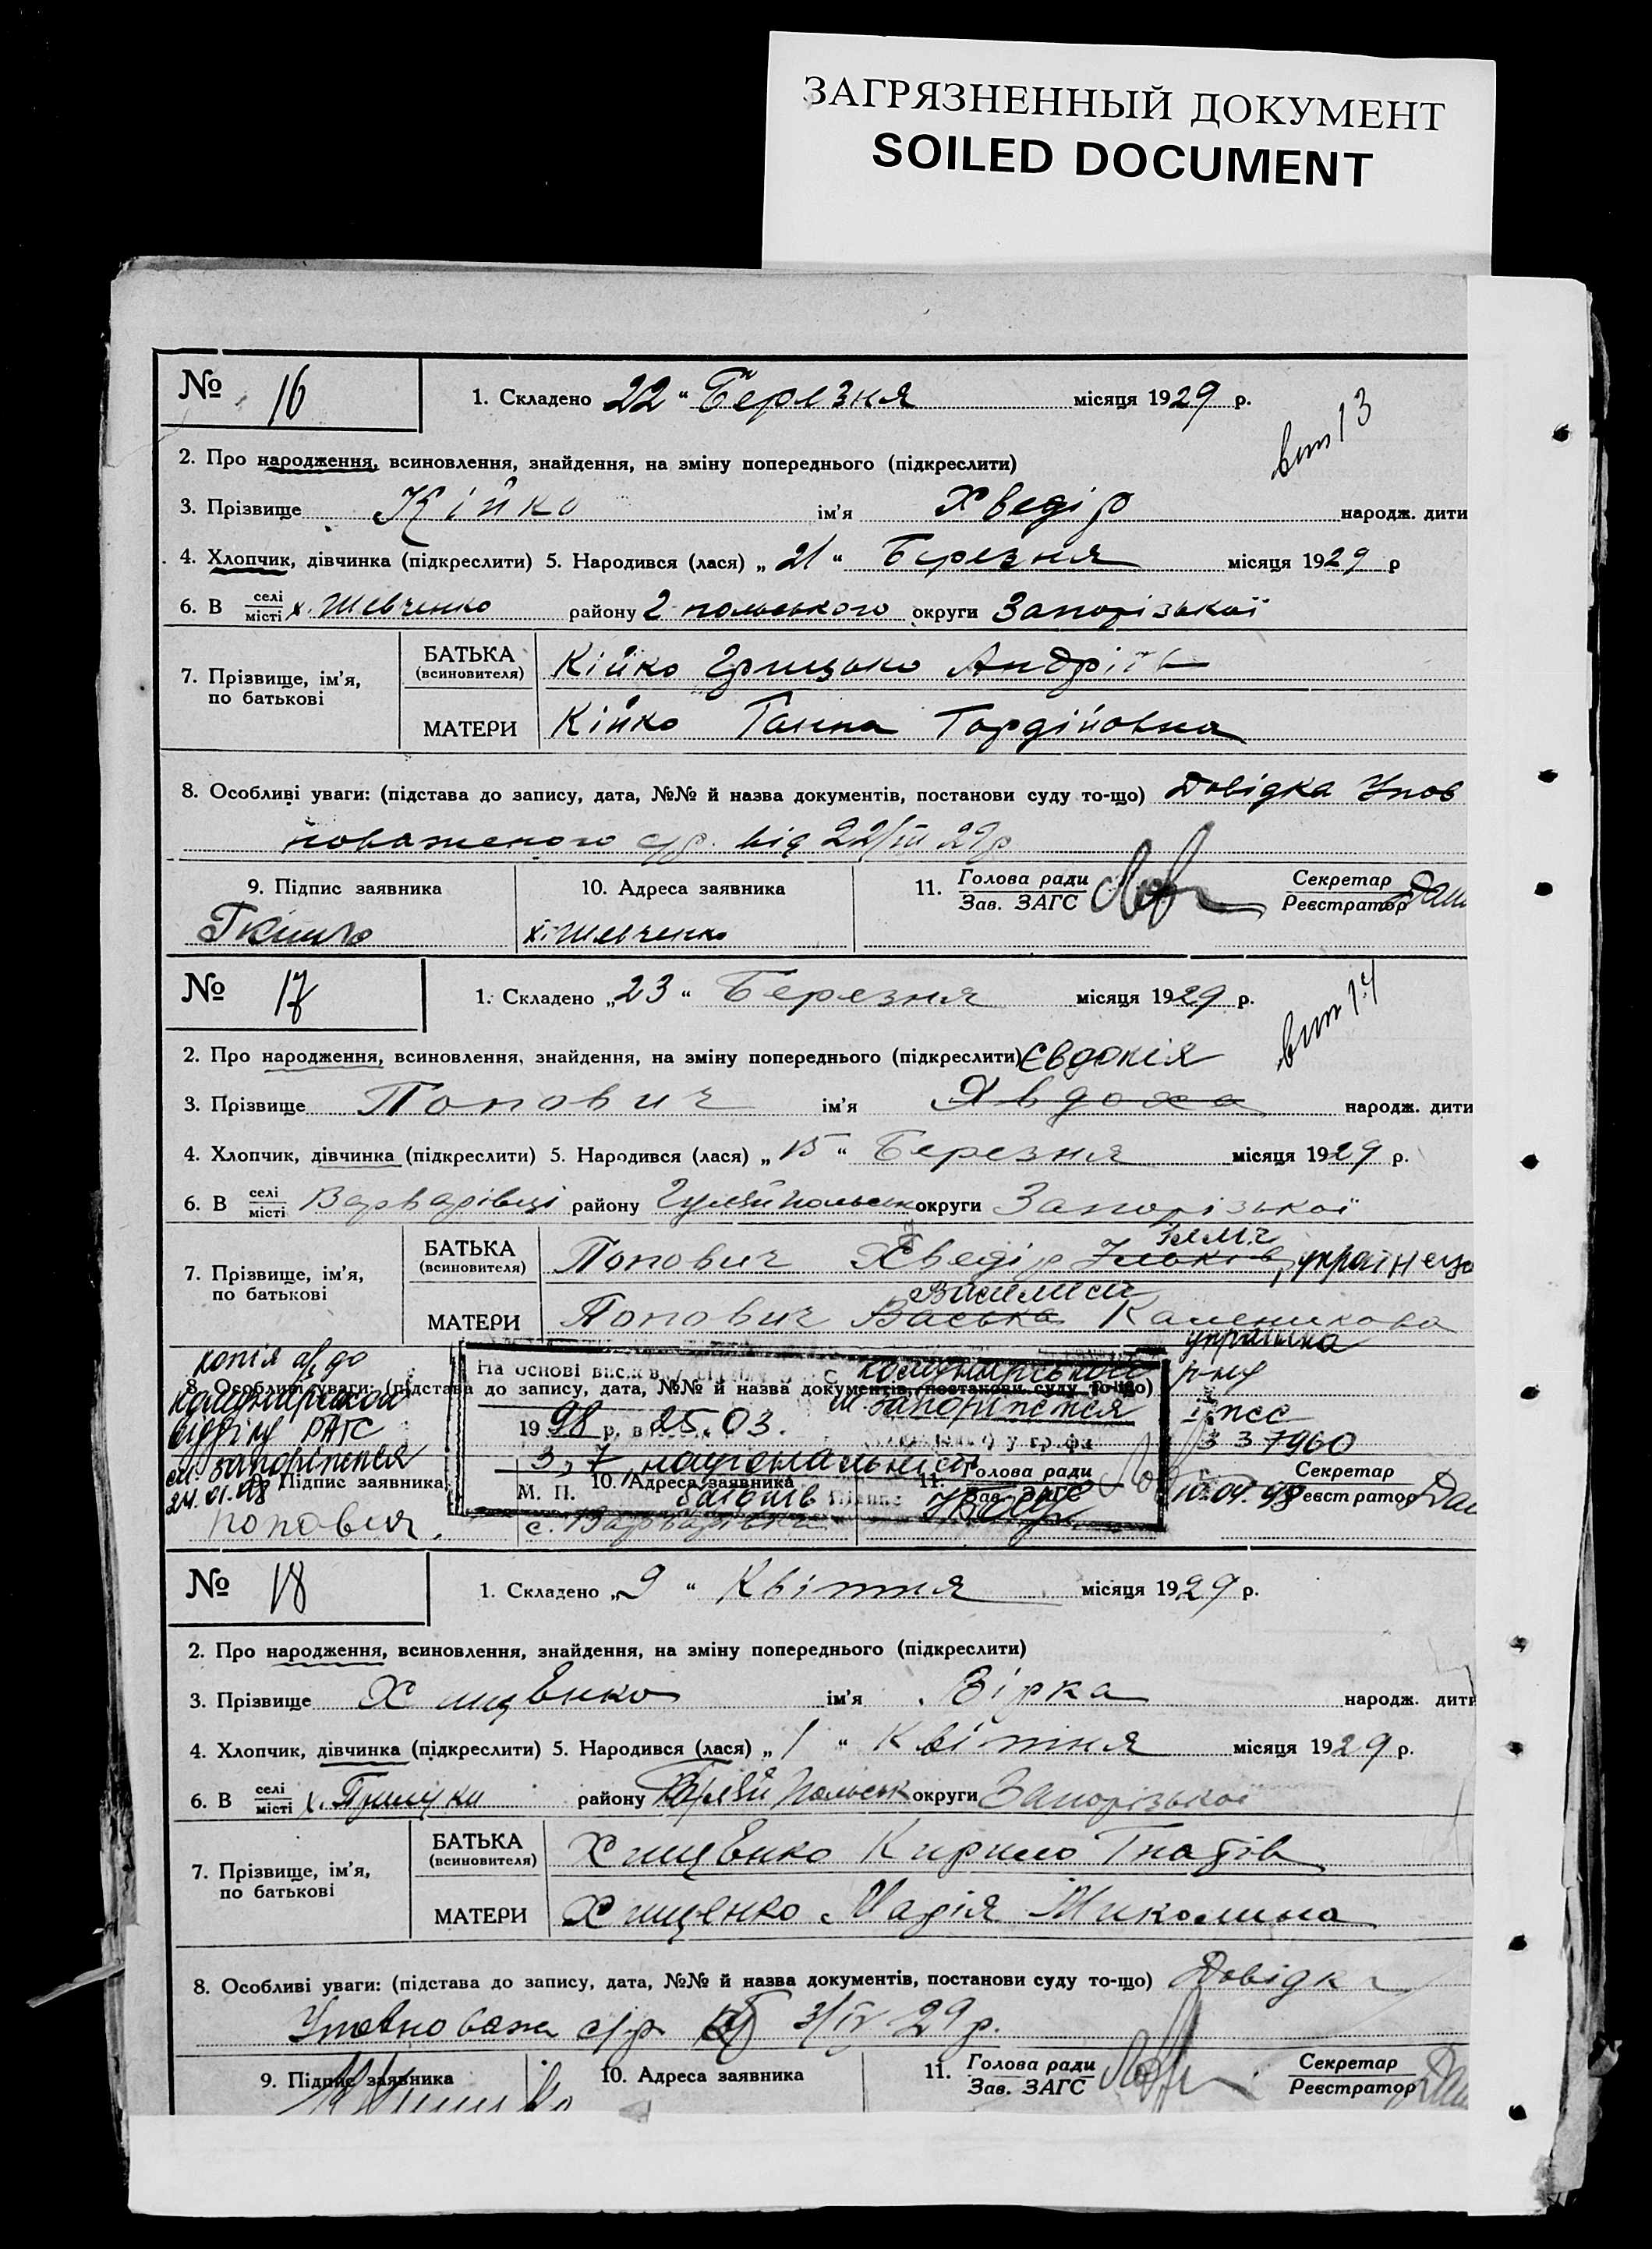 ЗАГРЯЗНЕННЫЙ ДОКУМЕНТ
SOILED DOCUMENT
№ 16
1. Складено 22 “ Березня місяця 1929 р.
вип 13
2. Про народження, всиновлення, знайдення, на зміну попереднього (підкреслити)
3. Прізвище Кійко ім’я Хведір народж. дити
4. Хлопчик, дівчинка (підкреслити) 5. Народився (лася) „ 21 “ Березня місяця 1929 р
6. В селі місті х. Шевченко району Г польського округи Запорізької
7. Прізвище, ім’я, по батькові
БАТЬКА (всиновителя) Кійко Грицько Андрієв
МАТЕРИ Кійко Ганна Гордійовна
8. Особливі уваги: (підстава до запису, дата, №№ й назва документів, постанови суду то-що) Довідка Упов
новаженого с/р. від 22/III 29р
9. Підпис заявника 10. Адреса заявника 11. Голова ради Зав. ЗАГС Секретар Реєстратор
х. Шевченко
№ 17
1. Складено „23 “ Березня місяця 1929 р.
вип 14
2. Про народження, всиновлення, знайдення, на зміну попереднього (підкреслити) Євдокія
3. Прізвище Попович ім’я Явдоха народж. дити
4. Хлопчик, дівчинка (підкреслити) 5. Народився (лася) „ 15 “ Березня місяця 1929 р.
6. В селі місті Варварівці району Гуляйпольськ округи Запорізької
7. Прізвище, ім’я, по батькові
БАТЬКА (всиновителя) Попович Хведір Ільків, українець
Василиси
МАТЕРИ Попович Васька Каленикова
українка
копія а/з до
8. Особливі уваги: (підстава до запису, дата, №№ й назва документів, постанови суду то-що)
На основі
Комунарського
відділу РАГС
м. Запоріжжя
м. Запоріжжя
24.01.98
1998 р. в 25.03.
у графи
3,7 національність
батьків
337960
10.04.98
9. Підпис заявника М. П. 10. Адреса заявника 11. Голова ради Зав. ЗАГС Секретар Реєстратор
Попович. с. Варварівка
№ 18
1. Складено „9 “ Квітня місяця 1929 р.
2. Про народження, всиновлення, знайдення, на зміну попереднього (підкреслити)
3. Прізвище Хищенко ім’я Вірка народж. дити
4. Хлопчик, дівчинка (підкреслити) 5. Народився (лася) „ 1 “ Квітня місяця 1929 р.
6. В селі місті х. Прилуки району Гуляй Польськ округи Запорізької
7. Прізвище, ім’я, по батькові
БАТЬКА (всиновителя) Хищенко Кирило Гнатів
МАТЕРИ Хищенко Марія Миколина
8. Особливі уваги: (підстава до запису, дата, №№ й назва документів, постанови суду то-що) Довідка
с/р 3/IV 29р.
9. Підпис заявника 10. Адреса заявника 11. Голова ради Зав. ЗАГС Секретар Реєстратор